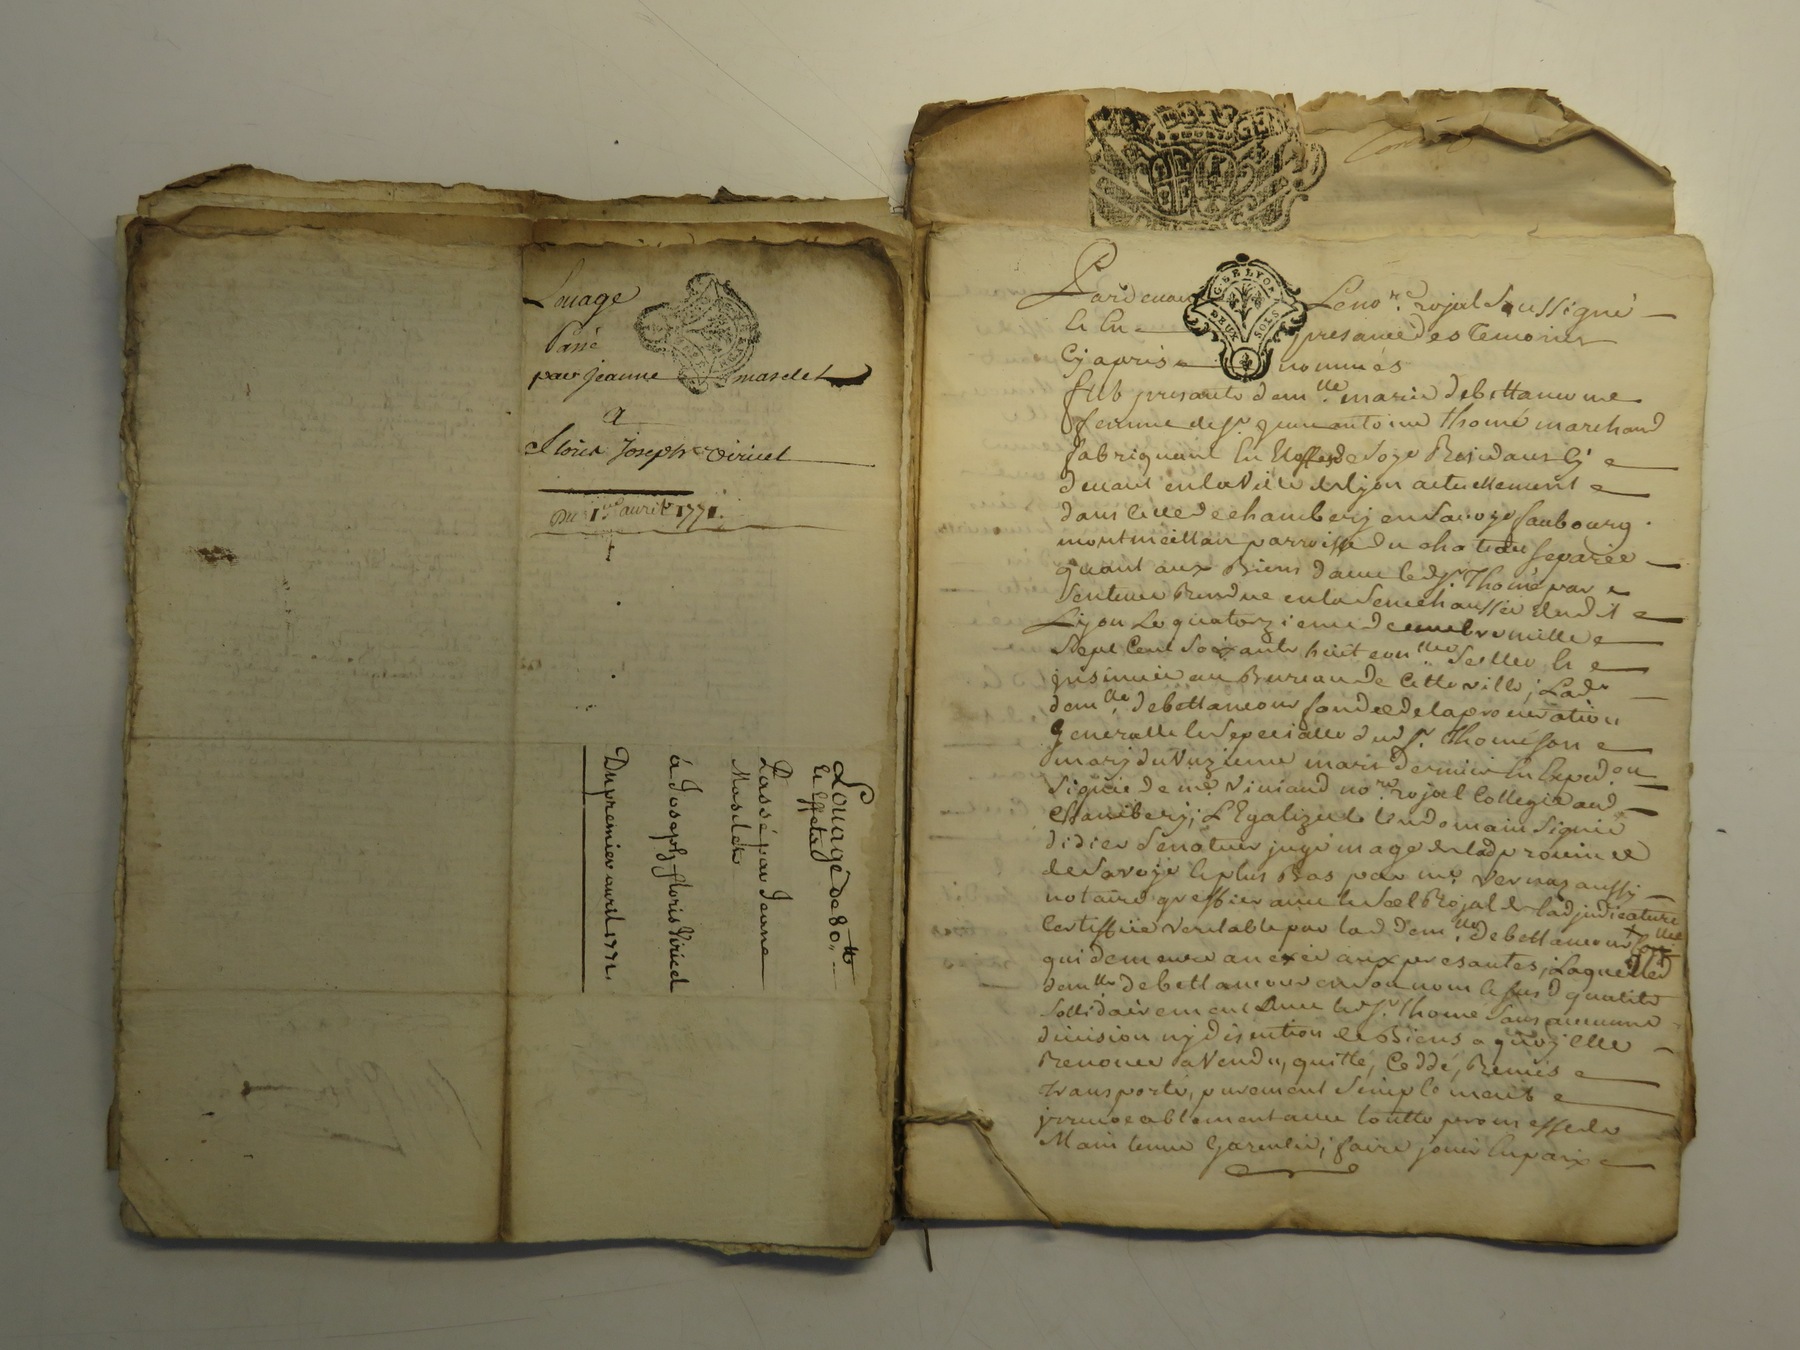 Louage
Passé
par jeanne masclet
a
floris joseph viricel
Du 1er avril 1771.
Louage de 80.tt
et effets
Passé par Jeanne
Masclet
à Joseph floris Viricel
Du premier avril 1771.
G. DE LYON
DEUX SOLS
Pardevant Le no.re royal Soussigné
et En presance des temoins
Cy apres nommés
fut presante dem.lle marie debettancour
femme de s.r jean antoine thomé marchand
fabriquant En Etoffes de Soye Residant Cy
devant en la Ville de lyon actuellement
dans la ville de chambery en Savoye faubourg
montmeillan parroisse du chateau separée
quant aux Biens d'avec le d. s.r Thomé par
Sentence Rendue en la Senechaussée dudit
Lyon Le quatorzieme decembre mille
Sept Cent Soixante huit Scellée et
jnsinuée au Bureau de Cette ville; Lad.e
dem.lle debettancour fondée de la procuration
generalle et specialle dud. s.r Thomé son
mary du Onzieme mars dernier En Exped.on
Signée de m.e Viniand no.re royal Collegié aud.
Chambery; Legalizée le lendemain Signé
didier Senateur juge mage de lad. province
de Savoye et plus Bas par m.e vernaz aussi
notaire greffier avec le Scel Royal de lad. judicature
Certiffiée veritable par lad. dem.lle debettancour
qui demeure anexée aux presantes; Laquelle d.
dem.lle debettancour en son nom et susd. qualité
Sollidairement avec led. s.r Thomé Sans aucune
division ny discution de Biens a quoy elle
Renonce a Vendu, quitté, Ceddé, Remis
transporté, purement Simplement
jrrevocablement avec toutte promesse de
Maintenue Garentie, faire jouir En paix